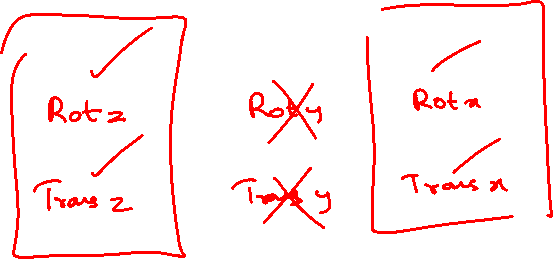 Rot z
Trans z
Rot y
Trans y
Rot x
Trans x